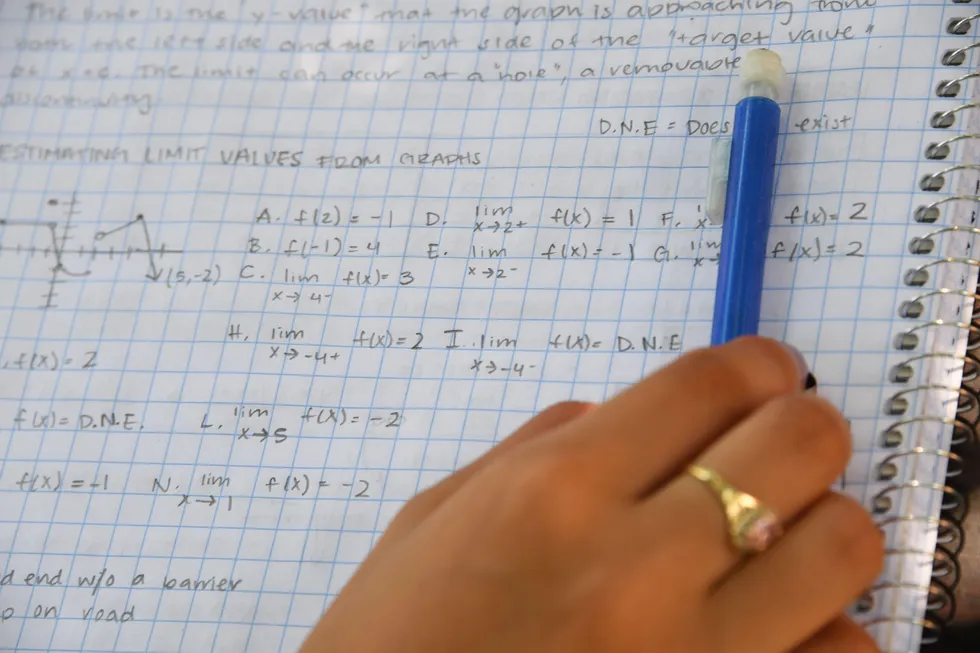 The limit is the "y-value" that the graph is approaching from
both the left side and the right side of the "target value"
of x=c. The limit can occur at a "hole", a removable
discontinuity.
D.N.E = Does exist
ESTIMATING LIMIT VALUES FROM GRAPHS
A. f(2) = -1 D. lim x→2+ f(x) = 1 F. f(x) = 2
B. f(-1) = 4 E. lim x→2- f(x) = -1 G. lim f(x) = 2
(5,-2) C. lim x→4- f(x) = 3
H. lim x→-4+ f(x) = 2 I. lim x→-4- f(x) = D.N.E
f(x) = 2
f(x) = D.N.E. L. lim x→5 f(x) = -2
f(x) = -1 N. lim x→1 f(x) = -2
end w/o a barrier
on road